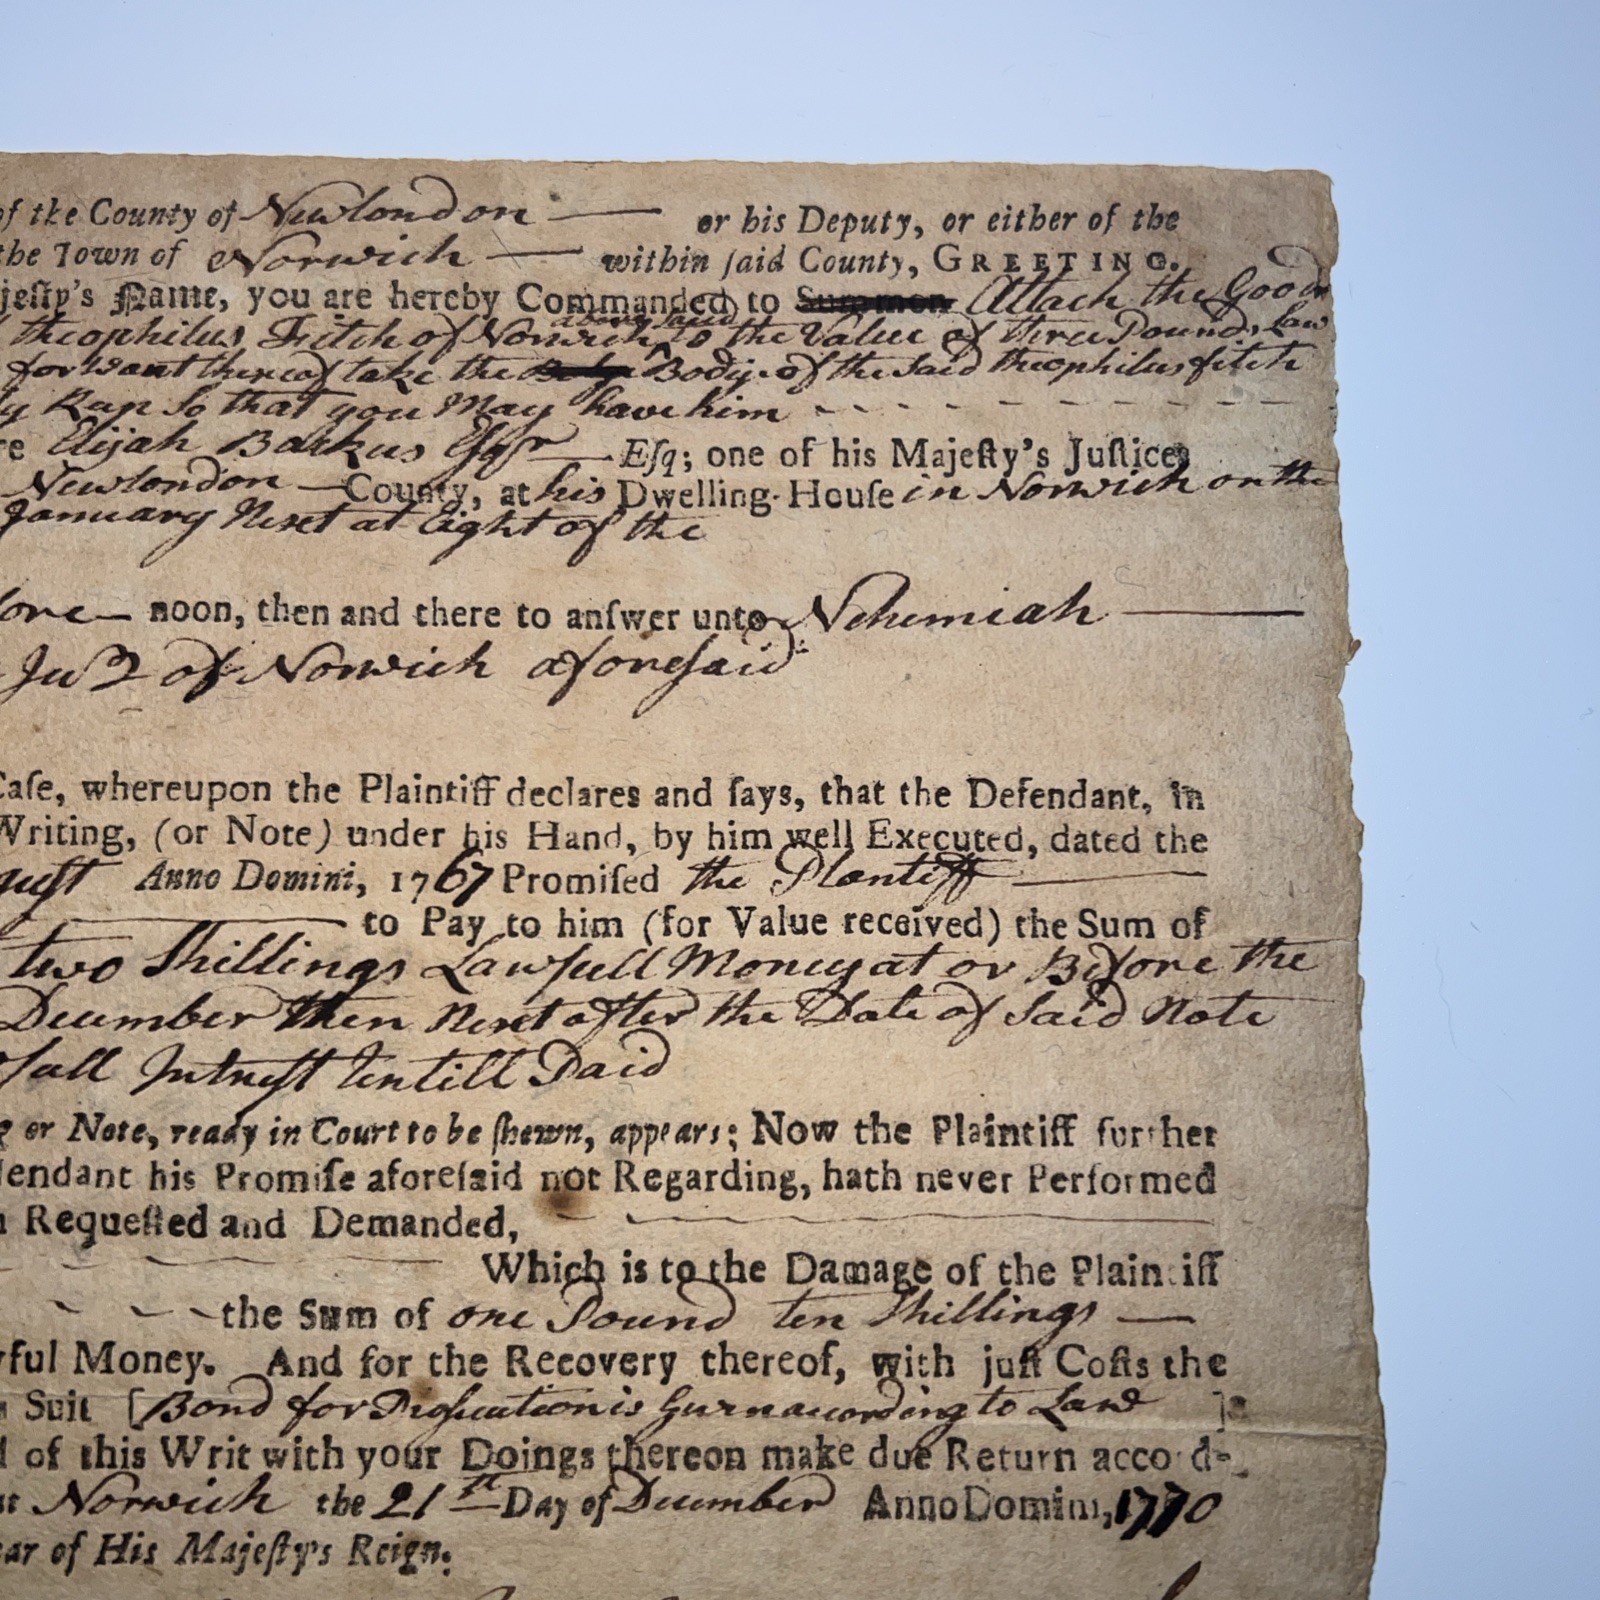 of the County of Newlondon — or his Deputy, or either of the
the Town of Norwich — within ſaid County, GREETING.
jeſty's Name, you are hereby Commanded to Summon Attach the Goods
theophilus Fitch of Norwich aboveſaid to the Value of three Pounds Law
for Want thereof take the Body of the Said theophilus fitch
so that you May have him - - - - - - - - - -
re Elijah Backus Eſqr — Eſq; one of his Majeſty's Juſtices
Newlondon — County, at his Dwelling-Houſe in Norwich on the
January Next at Eight of the
fore — noon, then and there to anſwer unto Nehemiah —
of Norwich aforeſaid
Caſe, whereupon the Plaintiff declares and ſays, that the Defendant, in
Writing, (or Note) under his Hand, by him well Executed, dated the
guſt Anno Domini, 1767 Promiſed the Plantiff —
to Pay to him (for Value received) the Sum of
two Shillings Lawfull Money at or Before the
December then Next after the Date of Said Note
full Intreſt Untill Paid
or Note, ready in Court to be ſhewn, appears; Now the Plaintiff further
fendant his Promiſe aforeſaid not Regarding, hath never Performed
n Requeſted and Demanded,
Which is to the Damage of the Plaintiff
the Sum of one Pound ten Shillings —
wful Money. And for the Recovery thereof, with juſt Coſts the
Suit [Bond for Proſecution is Given according to Law ]
of this Writ with your Doings thereon make due Return accord-
at Norwich the 21th Day of December Anno Domini, 1770
ear of His Majeſty's Reign.